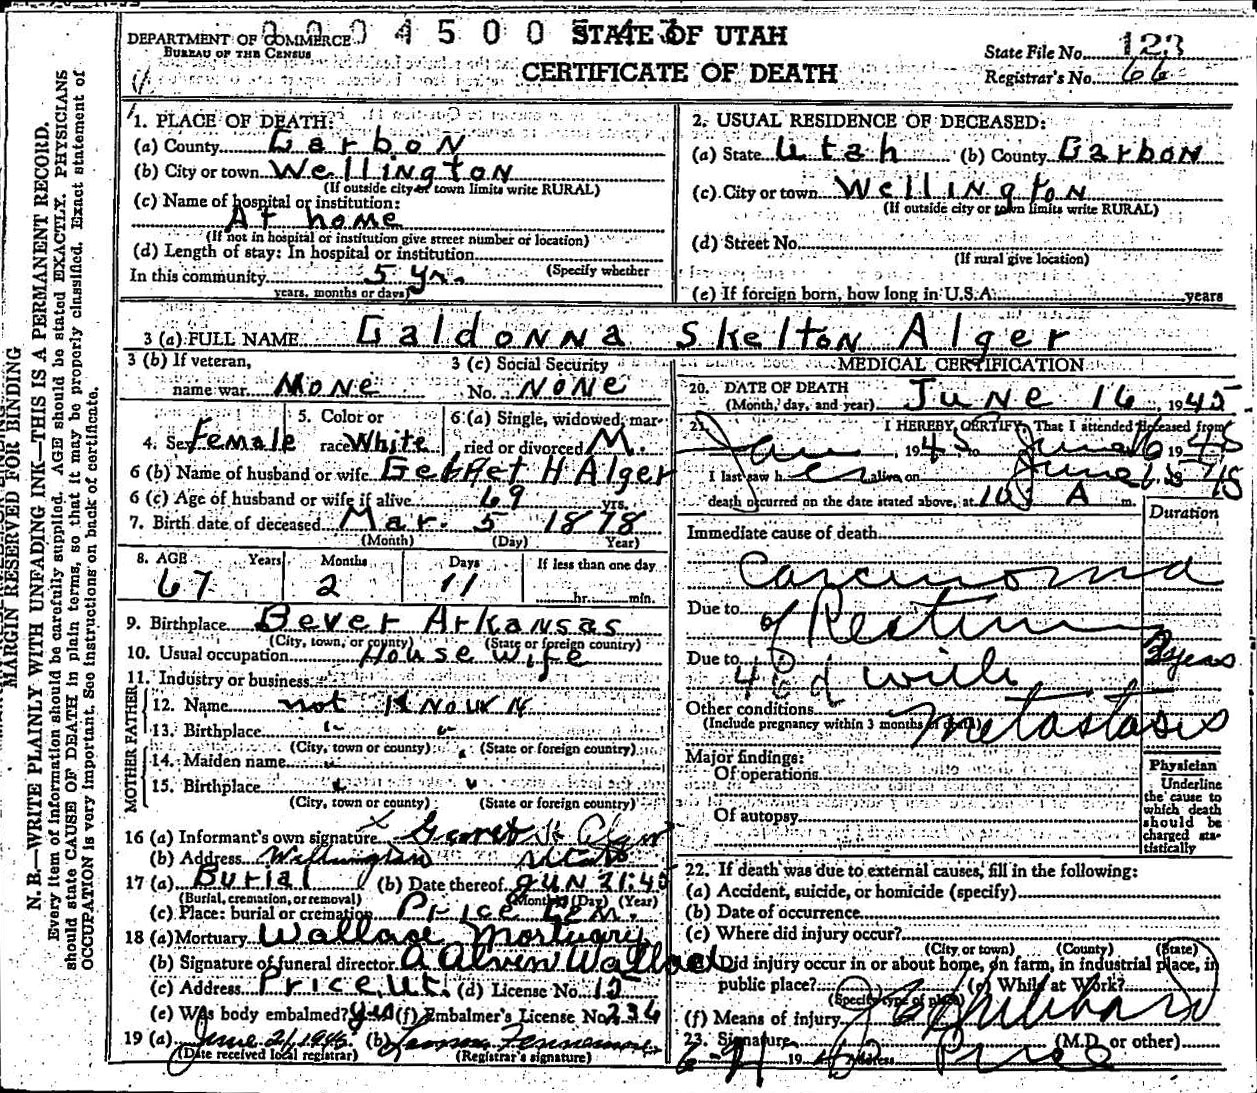 DEPARTMENT OF COMMERCE
BUREAU OF THE CENSUS
STATE OF UTAH
CERTIFICATE OF DEATH
State File No. 123
Registrar's No. 66
MARGIN RESERVED FOR BINDING
N. B.—WRITE PLAINLY WITH UNFADING INK—THIS IS A PERMANENT RECORD.
Every item of information should be carefully supplied. AGE should be stated EXACTLY. PHYSICIANS
should state CAUSE OF DEATH in plain terms, so that it may be properly classified. Exact statement of
OCCUPATION is very important. See instructions on back of certificate.
1. PLACE OF DEATH:
(a) County Carbon
(b) City or town Wellington
(If outside city or town limits write RURAL)
(c) Name of hospital or institution:
At home
(If not in hospital or institution give street number or location)
(d) Length of stay: In hospital or institution
(Specify whether
In this community 5 yr.
years, months or days)
2. USUAL RESIDENCE OF DECEASED:
(a) State Utah (b) County Carbon
(c) City or town Wellington
(If outside city or town limits write RURAL)
(d) Street No.
(If rural give location)
(e) If foreign born, how long in U.S.A. years
3 (a) FULL NAME Galdonna Skelton Alger
3 (b) If veteran,
name war None
3 (c) Social Security
No. None
4. Sex Female
5. Color or
race White
6 (a) Single, widowed, mar-
ried or divorced M.
6 (b) Name of husband or wife Garret H Alger
6 (c) Age of husband or wife if alive 69 yrs.
7. Birth date of deceased Mar. 5 1878
(Month) (Day) Year)
8. AGE Years Months Days If less than one day
67 2 11 hr. min.
9. Birthplace Bever Arkansas
(City, town, or county) (State or foreign country)
10. Usual occupation House wife
11. Industry or business
FATHER
12. Name not Known
13. Birthplace " "
(City, town or county) (State or foreign country)
MOTHER
14. Maiden name " "
15. Birthplace " "
(City, town or county) (State or foreign country)
16 (a) Informant's own signature x Garret H Alger
(b) Address Wellington Utah
17 (a) Burial (b) Date thereof Jun 21 45
(Burial, cremation, or removal) (Month) (Day) (Year)
(c) Place: burial or cremation Price Cem.
18 (a) Mortuary Wallace Mortuary
(b) Signature of funeral director A Alvin Wallace
(c) Address Price, Ut. (d) License No. 15
(e) Was body embalmed? yes (f) Embalmer's License No. 236
19 (a) June 21 1945 (b)
(Date received local registrar) (Registrar's signature)
MEDICAL CERTIFICATION
20. DATE OF DEATH
(Month, day, and year) June 16 1945
21. I HEREBY CERTIFY, That I attended deceased from
Jan, 1945 to June 16 1945
I last saw her alive on June 15 45
death occurred on the date stated above, at 10 A m.
Duration
Immediate cause of death
Carcinoma
Due to of Rectum
2 years
Due to with
Other conditions metastasis
(Include pregnancy within 3 months of death)
Major findings:
Of operations
Of autopsy
Physician
Underline
the cause to
which death
should be
charged sta-
tistically
22. If death was due to external causes, fill in the following:
(a) Accident, suicide, or homicide (specify)
(b) Date of occurrence
(c) Where did injury occur?
(City or town) (County) (State)
Did injury occur in or about home, on farm, in industrial place, in
public place? (e) While at Work?
(Specify type of place)
(f) Means of injury
23. Signature Hubbard (M.D. or other)
Address Price